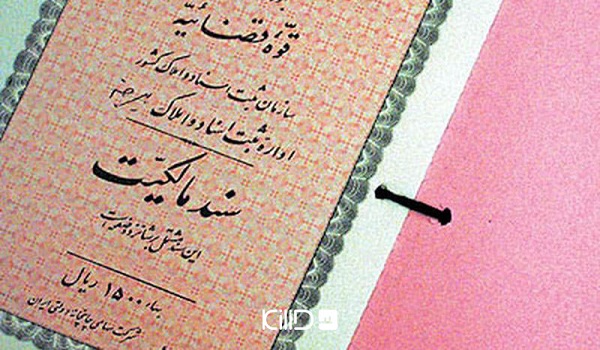 قوّهٔ قضائیّه
سازمان ثبت اسناد و املاک کشور
ادارهٔ ثبت اسناد و املاک
سند مالکیّت
این سند مشتمل بر شانزده صفحه است
بهاء ۱۵۰۰ ریال
شرکت سهامی چاپخانه دولتی ایران
KILID